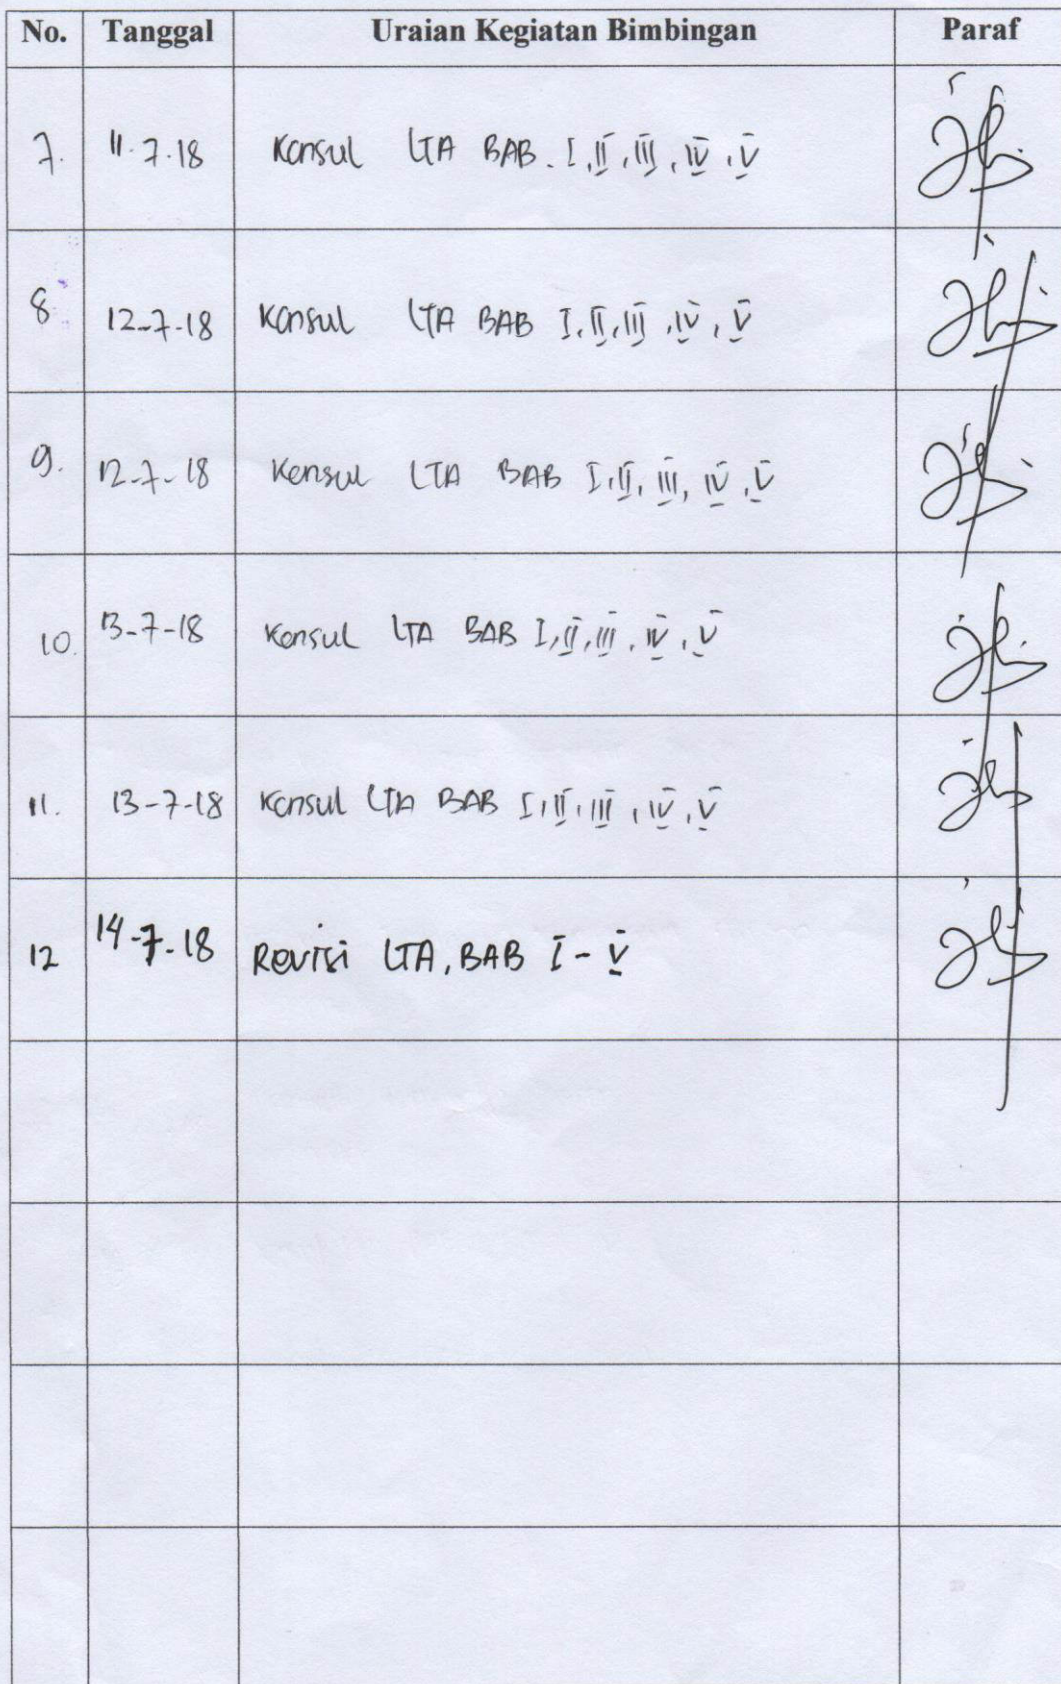 No. Tanggal Uraian Kegiatan Bimbingan Paraf
7. 11.7.18 Konsul LTA BAB. I, II, III, IV, V
8. 12-7-18 Konsul LTA BAB I, II, III, IV, V
9. 12-7-18 Konsul LTA BAB I, II, III, IV, V
10. 13-7-18 Konsul LTA BAB I, II, III, IV, V
11. 13-7-18 Konsul LTA BAB I, II, III, IV, V
12 14-7-18 Revisi LTA, BAB I - V